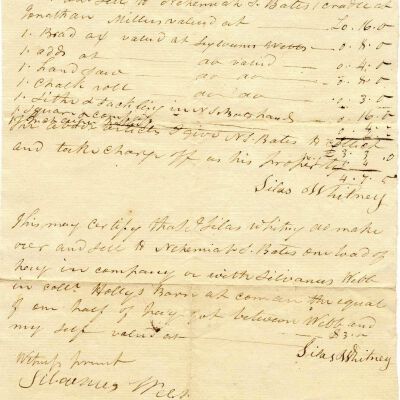 sell to Nehemiah S. Bates 1 Cradle at
Jonathan Millers valued at £0. 16. 0
1. Broad ax valued at Sylvanus Webbs 0. 8. 0
1. adds at do valued 0. 4. 0
1. handsaw do do 3. 8. 0
1. Chalk roll do do 2. 0
1. Sithe & Tackling in N S Bates hands 0. 16. 0
The above articles I give N S. Bates to
and take charge off as his property
4. 7. 0
Silas Whitney
This may certify that I Silas Whitney as make
over and sell to Nehemiah S. Bates one load of
hay in company or with Silvanus Webb
in Hollys Barn at the equal
of one half of hay between Webb and
my self valued at
Silas Whitney
Witness present
Silvanus Webb